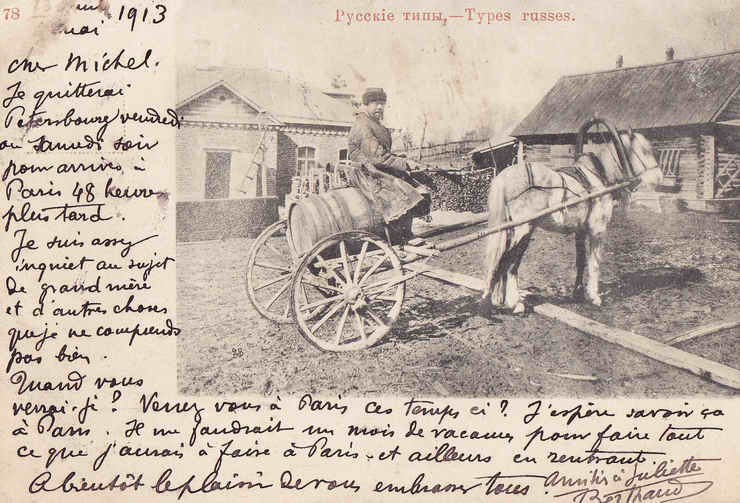 78
Русскіе типы,—Types russes.
1913
mai
cher Michel.
Je quitterai
Petersbourg vendredi
ou samedi soir
pour arriver à
Paris 48 heures
plus tard.
Je suis assez
inquiet au sujet
de grand mère
et d'autres choses
que je ne comprends
pas bien.
Quand vous
verrai-je? Venez vous à Paris ces temps ci? J'espère savoir ça
à Paris. Il me faudrait un mois de vacances pour faire tout
ce que j'aurais à faire à Paris et ailleurs en rentrant.
A bientôt le plaisir de vous embrasser tous
Amitiés à Juliette